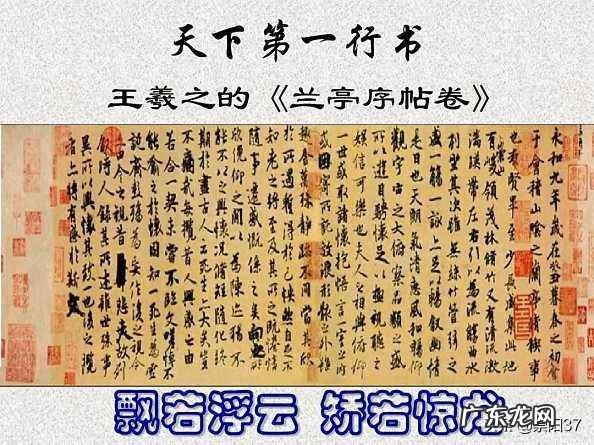 天下第一行书
王羲之的《兰亭序帖卷》
永和九年歲在癸丑暮春之初會
于會稽山陰之蘭亭脩稧事
也群賢畢至少長咸集此地
有崇山峻領茂林脩竹又有清流激
湍暎帶左右引以為流觴曲水
列坐其次雖無絲竹管弦之
盛一觴一詠亦足以暢敘幽情
是日也天朗氣清惠風和暢仰
觀宇宙之大俯察品類之盛
所以遊目騁懷足以極視聽之
娛信可樂也夫人之相與俯仰
一世或取諸懷抱悟言一室之內
或因寄所託放浪形骸之外雖
趣舍萬殊靜躁不同當其欣
於所遇暫得於己怏然自足不
知老之將至及其所之既惓情
隨事遷感慨係之矣向之所
欣俛仰之閒以為陳迹猶不
能不以之興懷況脩短隨化終
期於盡古人云死生亦大矣豈
不痛哉每攬昔人興感之由
若合一契未嘗不臨文嗟悼不
能喻之於懷固知一死生為虛
誕齊彭殤為妄作後之視今
亦由今之視昔悲夫故列
敘時人錄其所述雖世殊事
異所以興懷其致一也後之攬
者亦將有感於斯文
飘若浮云 矫若惊龙
广东龙网